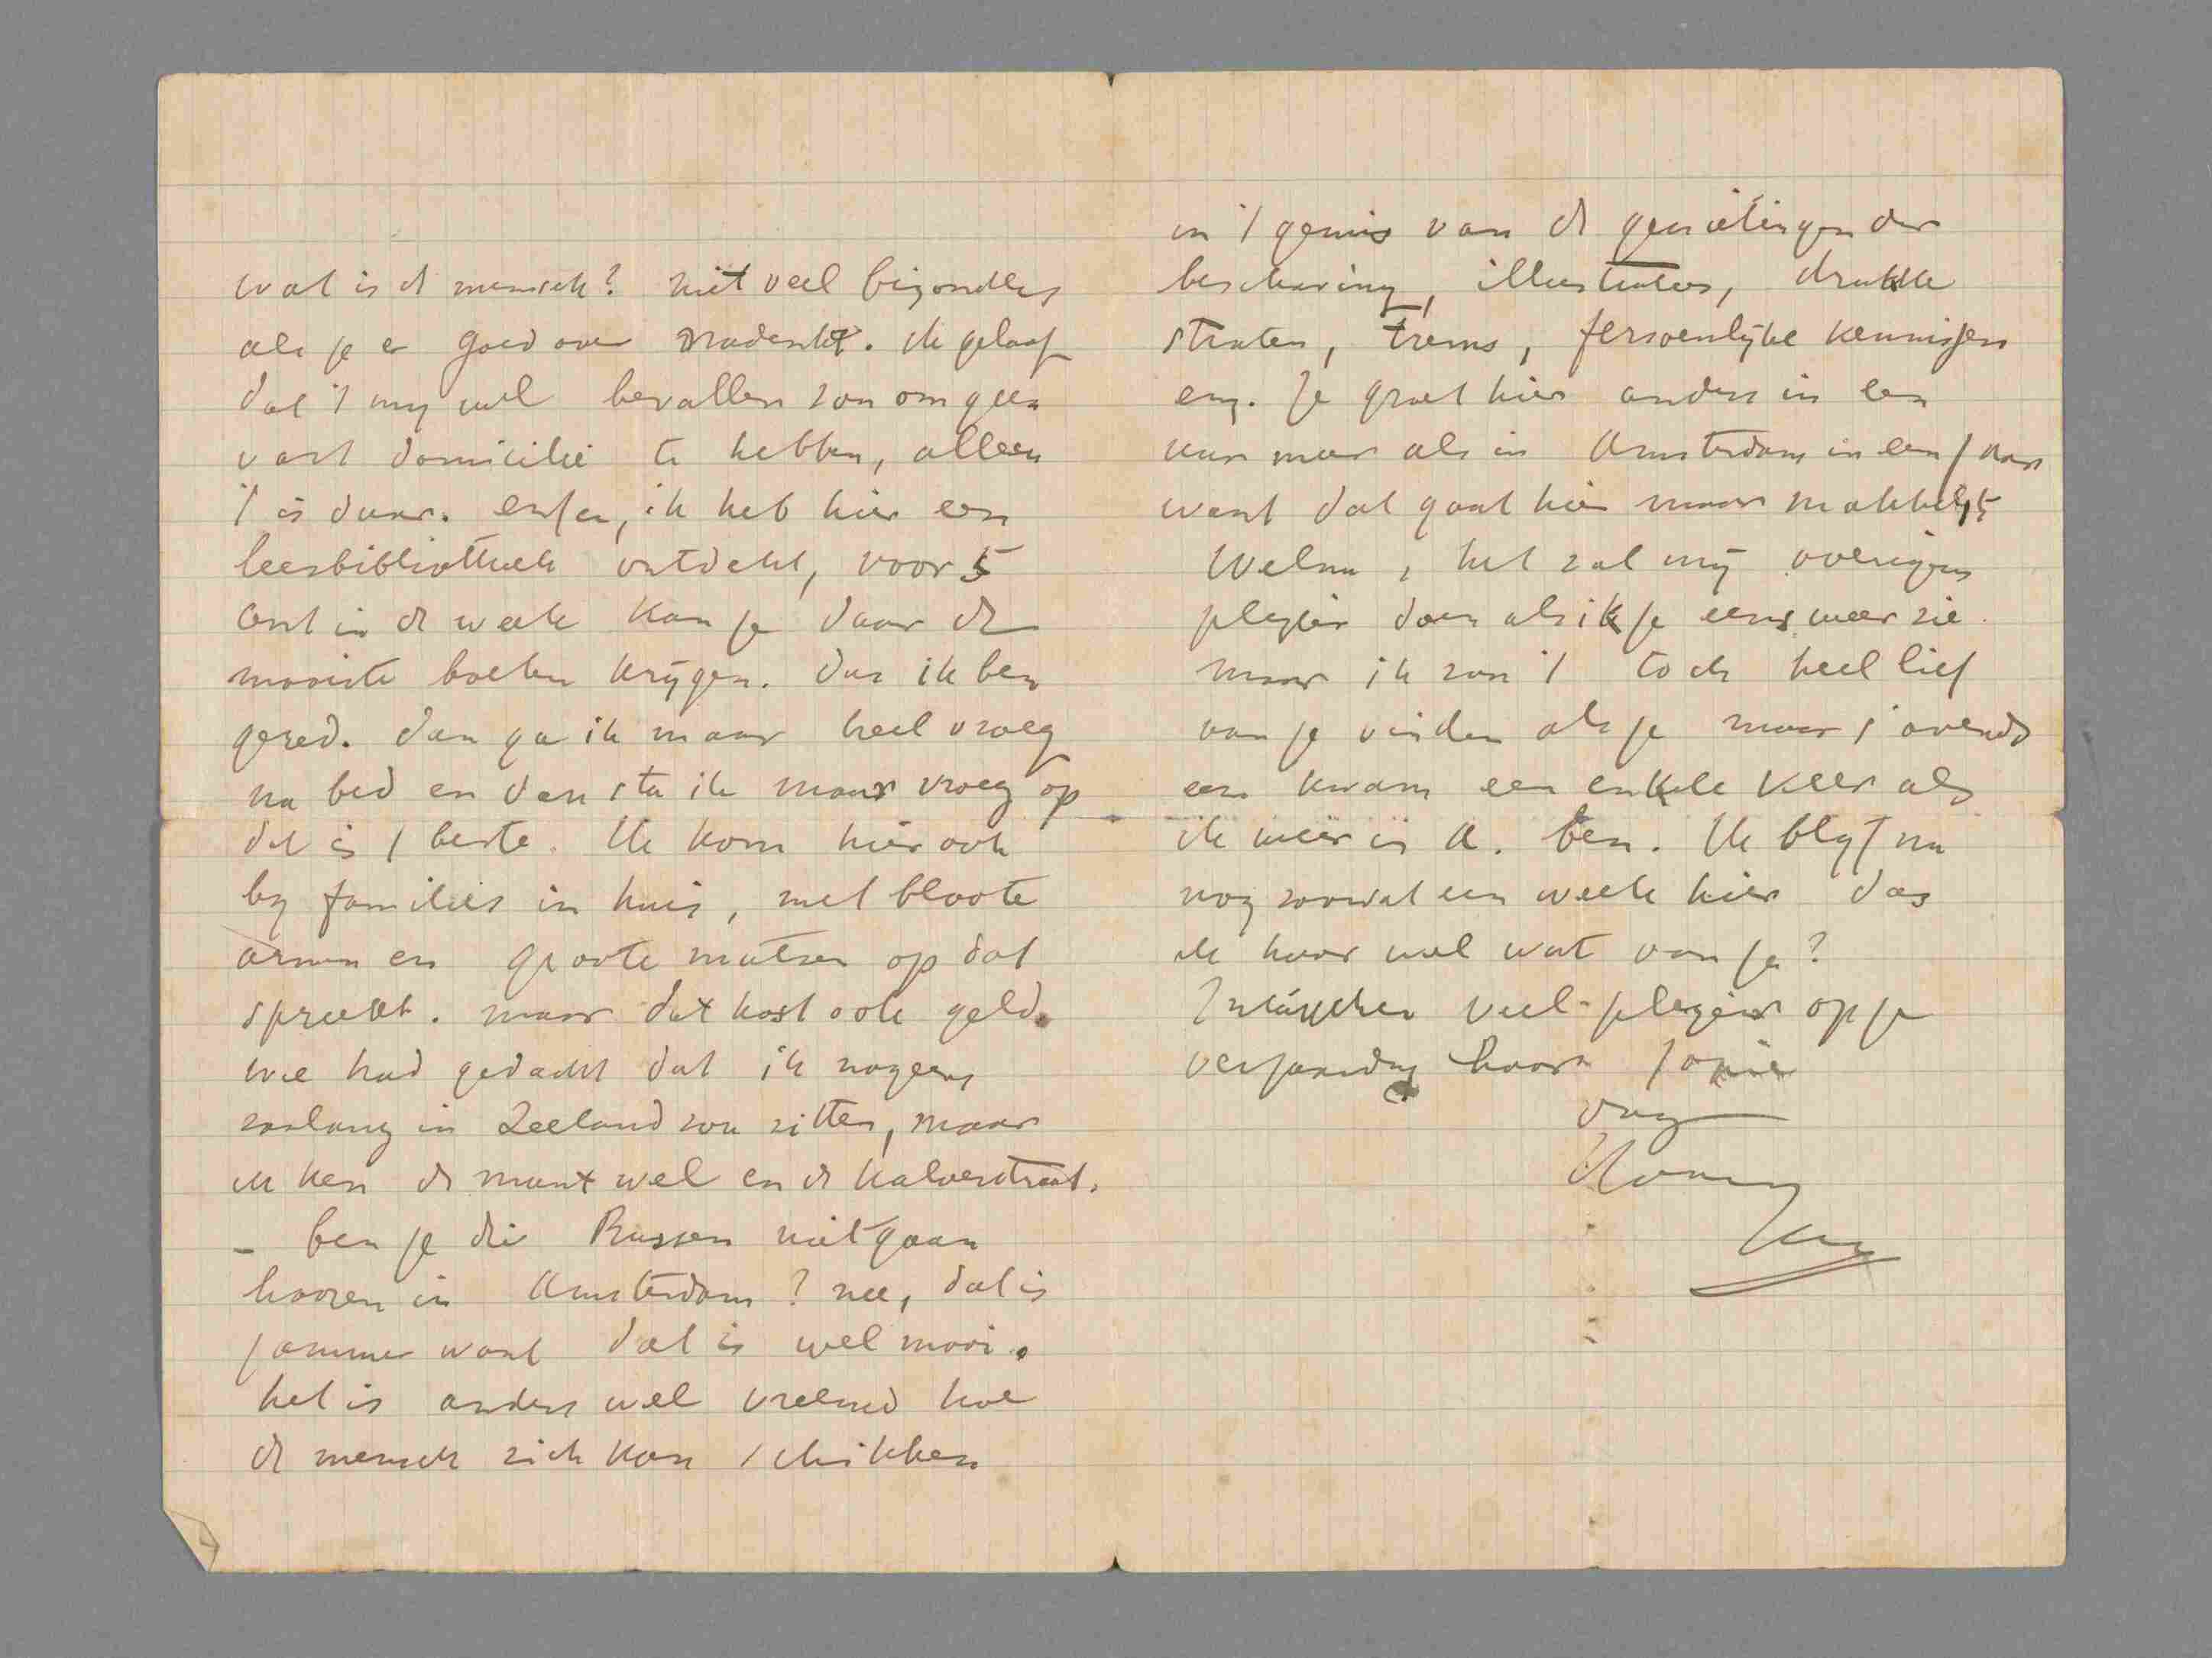 wat is de mensch? niet veel bizonders
als je er goed over nadenkt. ik geloof
dat 't mij wel bevallen zou om geen
vast domicilie te hebben, alleen
't is duur. enfin, ik heb hier een
leesbibliotheek ontdekt, voor 5
cent in de week kan je daar de
mooiste boeken krijgen. dus ik ben
gered. dan ga ik maar heel vroeg
na bed en dan sta ik maar vroeg op
dat is 't beste. Ik kom hier ook
bij families in huis, met bloote
armen en groote mutsen op dat
spreekt. maar dat kost ook geld.
wie had gedacht dat ik nog eens
zoolang in Zeeland zou zitten, maar
ik ken de munt wel en de Kalverstraat.
- ben je die Russen niet gaan
hooren in Amsterdam? nee, dat is
jammer want dat is wel mooi.
het is anders wel vreemd hoe
de mensch zich kan schikken
in 't gemis van de genietingen der
beschaving, illustraties, drukke
straten, trems, persoenlijke kennissen
enz. Je groet hier anders in een
uur meer als in Amsterdam in een jaar
want dat gaat hier maar makkelijk
Welnu, het zal mij overigens
plezier doen als ik je eens weer zie.
maar ik zou 't toch heel lief
van je vinden als je maar s'avonds
een kwam een enkele keer als
ik weer in A. ben. Ik blijf nu
nog zoowat een week hier dus
ik hoor wel wat van je?
Intusschen veel plezier op je
verjaardag hoor
dag